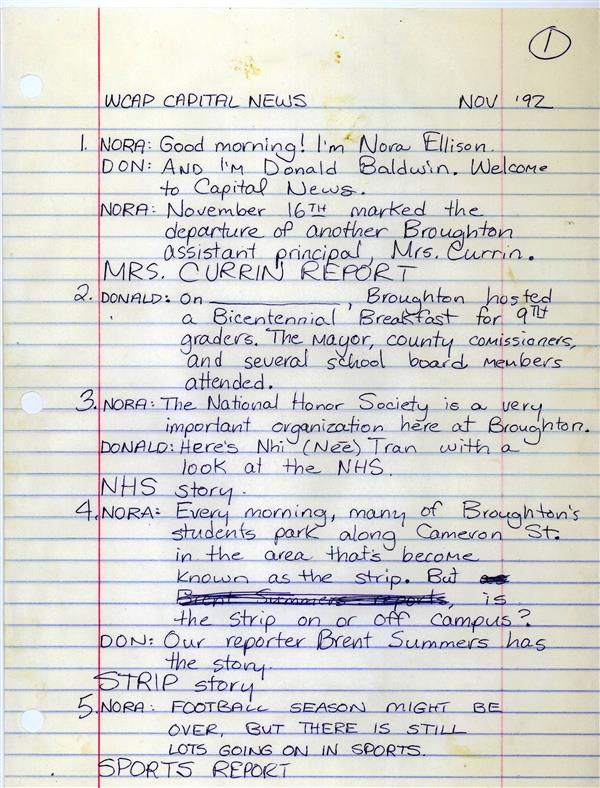 1
WCAP CAPITAL NEWS NOV '92
1. NORA: Good morning! I'm Nora Ellison.
DON: AND I'M Donald Baldwin. Welcome
to Capital News.
NORA: November 16TH marked the
departure of another Broughton
assistant principal, Mrs. Currin.
MRS. CURRIN REPORT
2. DONALD: On ____________, Broughton hosted
a Bicentennial Breakfast for 9TH
graders. The Mayor, county comissioners,
and several school board members
attended.
3. NORA: The National Honor Society is a very
important organization here at Broughton.
DONALD: Here's Nhi (Nēē) Tran with a
look at the NHS.
NHS story.
4. NORA: Every morning, many of Broughton's
students park along Cameron St.
in the area that's become
known as the strip. But as
Brent Summers reports, is
the strip on or off campus?
DON: Our reporter Brent Summers has
the story.
STRIP story
5. NORA: FOOTBALL SEASON MIGHT BE
OVER, BUT THERE IS STILL
LOTS GOING ON IN SPORTS.
SPORTS REPORT